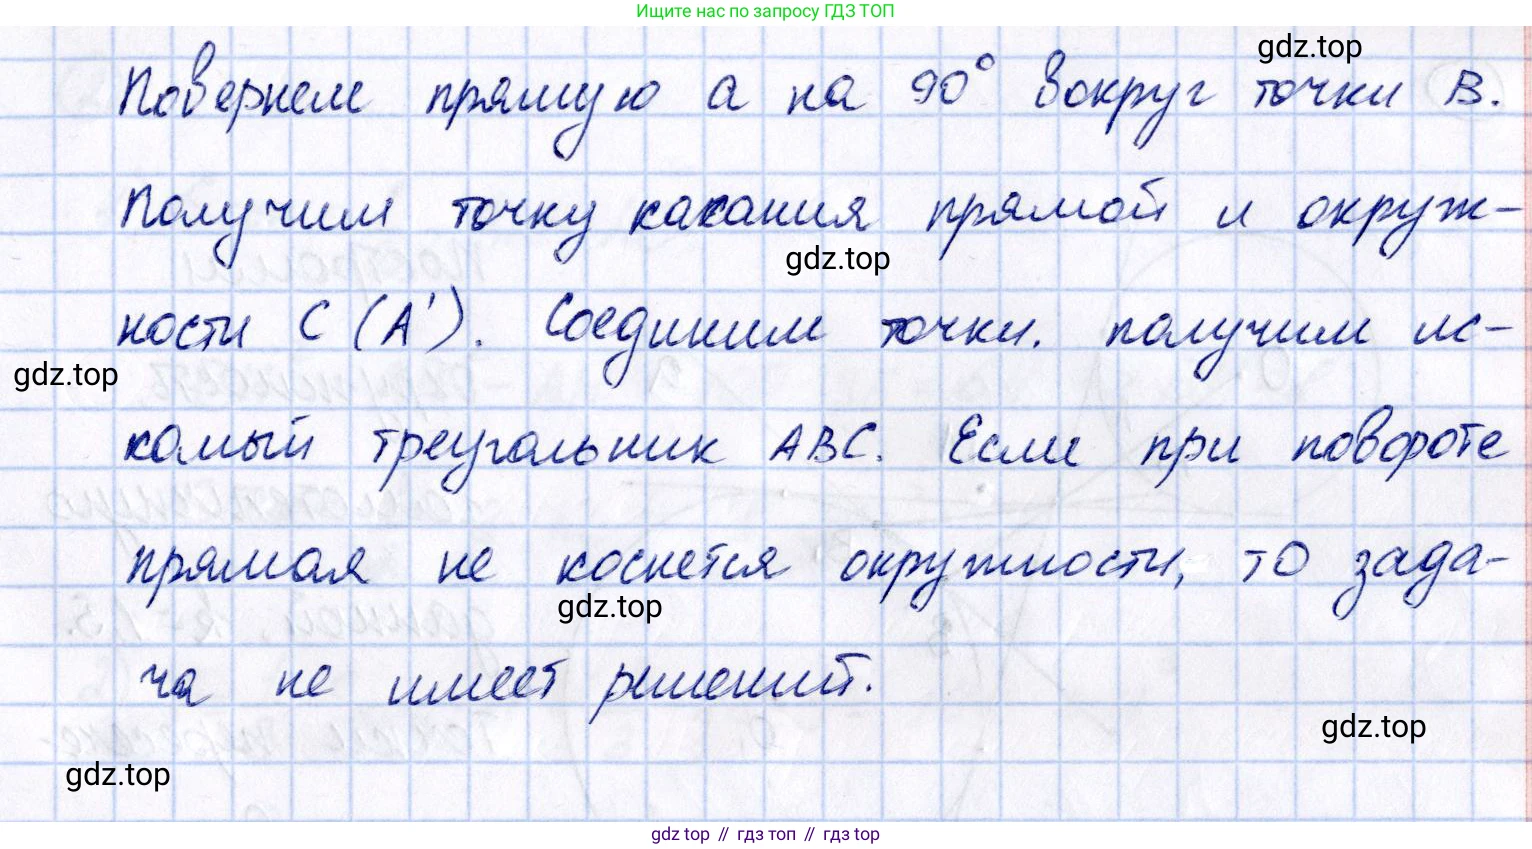 Ищите нас по запросу ГДЗ ТОП
gdz.top
Повернем прямую a на 90° вокруг точки B.
Получим точку касания прямой и окруж-
gdz.top
ности C (A'). Соединим точки. получим ис-
gdz.top
комый треугольник ABC. Если при повороте
прямая не коснется окружности, то зада-
gdz.top
ча не имеет решений.
gdz.top
gdz.top
gdz top // гдз топ // гдз top